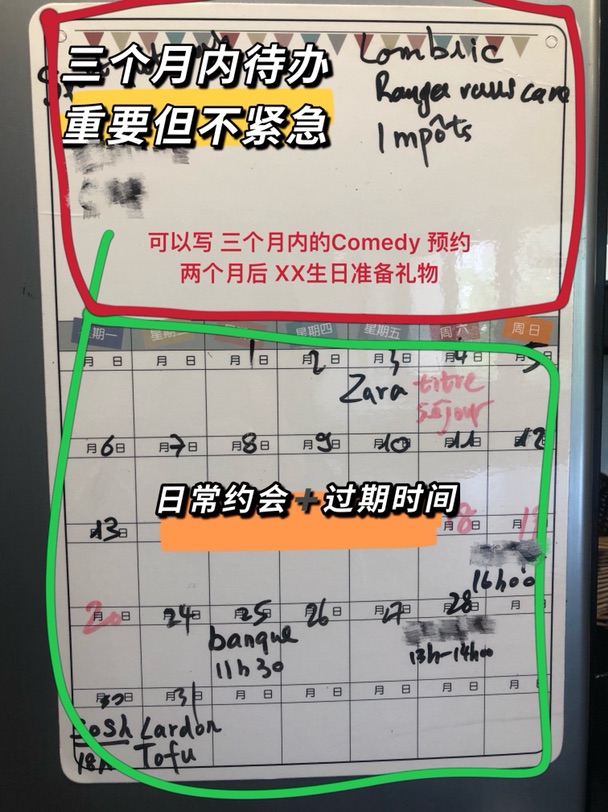 三个月内待办
重要但不紧急
Lombric
Ranger
Impôts
可以写 三个月内的Comedy 预约
两个月后 XX生日准备礼物
星期四 星期五 周六 周日
月 日 月 日 月1日 月2日 月3日 月4日 月5日
Zara titre
séjour
月6日 月7日 月8日 月9日 月10日 月11日 月12日
日常约会➕过期时间
月13日 月18日 月19日
16h00
月20日 月24日 月25日 月26日 月27日 月28日 月 日
banque
11h30
13h-14h00
月30日 月31日 月 日 月 日 月 日 月 日 月 日
Lardon
18h Tofu